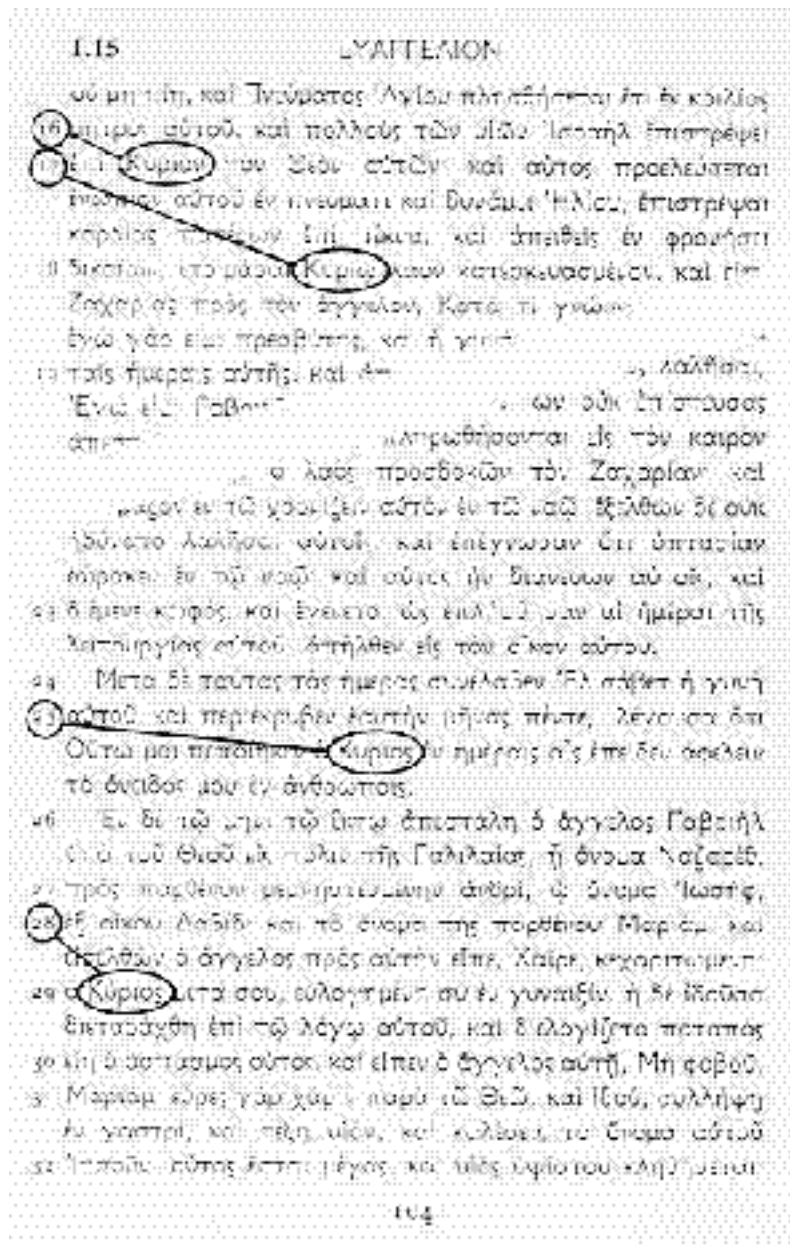 1.15 ΕΥΑΓΓΕΛΙΟΝ
οὐ μὴ πίῃ, καὶ Πνεύματος Ἁγίου πλησθήσεται ἔτι ἐκ κοιλίας
16 μητρὸς αὐτοῦ, καὶ πολλοὺς τῶν υἱῶν Ἰσραὴλ ἐπιστρέψει
17 ἐπὶ Κύριον τὸν Θεὸν αὐτῶν· καὶ αὐτὸς προελεύσεται
ἐνώπιον αὐτοῦ ἐν πνεύματι καὶ δυνάμει Ἠλίου, ἐπιστρέψαι
καρδίας πατέρων ἐπὶ τέκνα, καὶ ἀπειθεῖς ἐν φρονήσει
18 δικαίων, ἑτοιμάσαι Κυρίῳ λαὸν κατεσκευασμένον. καὶ εἶπε
Ζαχαρίας πρὸς τὸν ἄγγελον, Κατὰ τί γνώσ
ἐγὼ γάρ εἰμι πρεσβύτης, καὶ ἡ γυνή
19 ταῖς ἡμέραις αὐτῆς. καὶ λαλῆσαι,
Ἐγώ εἰμι Γαβρι ων οὐκ ἐπίστευσας
πληρωθήσονται εἰς τὸν καιρὸν
ὁ λαὸς προσδοκῶν τὸν Ζαχαρίαν· καὶ
μαζον ἐν τῷ χρονίζειν αὐτὸν ἐν τῷ ναῷ. ἐξελθὼν δὲ οὐκ
ἠδύνατο λαλῆσαι αὐτοῖς, καὶ ἐπέγνωσαν ὅτι ὀπτασίαν
ἑώρακεν ἐν τῷ ναῷ· καὶ αὐτὸς ἦν διανεύων αὐτοῖς, καὶ
23 διέμενε κωφός. καὶ ἐγένετο, ὡς ἐπλήσθησαν αἱ ἡμέραι τῆς
λειτουργίας αὐτοῦ, ἀπῆλθεν εἰς τὸν οἶκον αὐτοῦ.
24 Μετὰ δὲ ταύτας τὰς ἡμέρας συνέλαβεν Ἐλισάβετ ἡ γυνὴ
25 αὐτοῦ, καὶ περιέκρυβεν ἑαυτὴν μῆνας πέντε, λέγουσα ὅτι
Οὕτω μοι πεποίηκεν ὁ Κύριος ἐν ἡμέραις αἷς ἐπεῖδεν ἀφελεῖν
τὸ ὄνειδός μου ἐν ἀνθρώποις.
26 Ἐν δὲ τῷ μηνὶ τῷ ἕκτῳ ἀπεστάλη ὁ ἄγγελος Γαβριὴλ
ὑπὸ τοῦ Θεοῦ εἰς πόλιν τῆς Γαλιλαίας, ᾗ ὄνομα Ναζαρέθ,
27 πρὸς παρθένον μεμνηστευμένην ἀνδρί, ᾧ ὄνομα Ἰωσήφ,
28 ἐξ οἴκου Δαβίδ· καὶ τὸ ὄνομα τῆς παρθένου Μαριάμ. καὶ
εἰσελθὼν ὁ ἄγγελος πρὸς αὐτὴν εἶπε, Χαῖρε, κεχαριτωμένη·
29 ὁ Κύριος μετὰ σοῦ, εὐλογημένη σὺ ἐν γυναιξίν. ἡ δὲ ἰδοῦσα
διεταράχθη ἐπὶ τῷ λόγῳ αὐτοῦ, καὶ διελογίζετο ποταπὸς
30 εἴη ὁ ἀσπασμὸς οὗτος. καὶ εἶπεν ὁ ἄγγελος αὐτῇ, Μὴ φοβοῦ,
31 Μαριάμ· εὗρες γὰρ χάριν παρὰ τῷ Θεῷ. καὶ ἰδού, συλλήψῃ
ἐν γαστρί, καὶ τέξῃ υἱόν, καὶ καλέσεις τὸ ὄνομα αὐτοῦ
32 Ἰησοῦν. οὗτος ἔσται μέγας, καὶ υἱὸς ὑψίστου κληθήσεται·
104